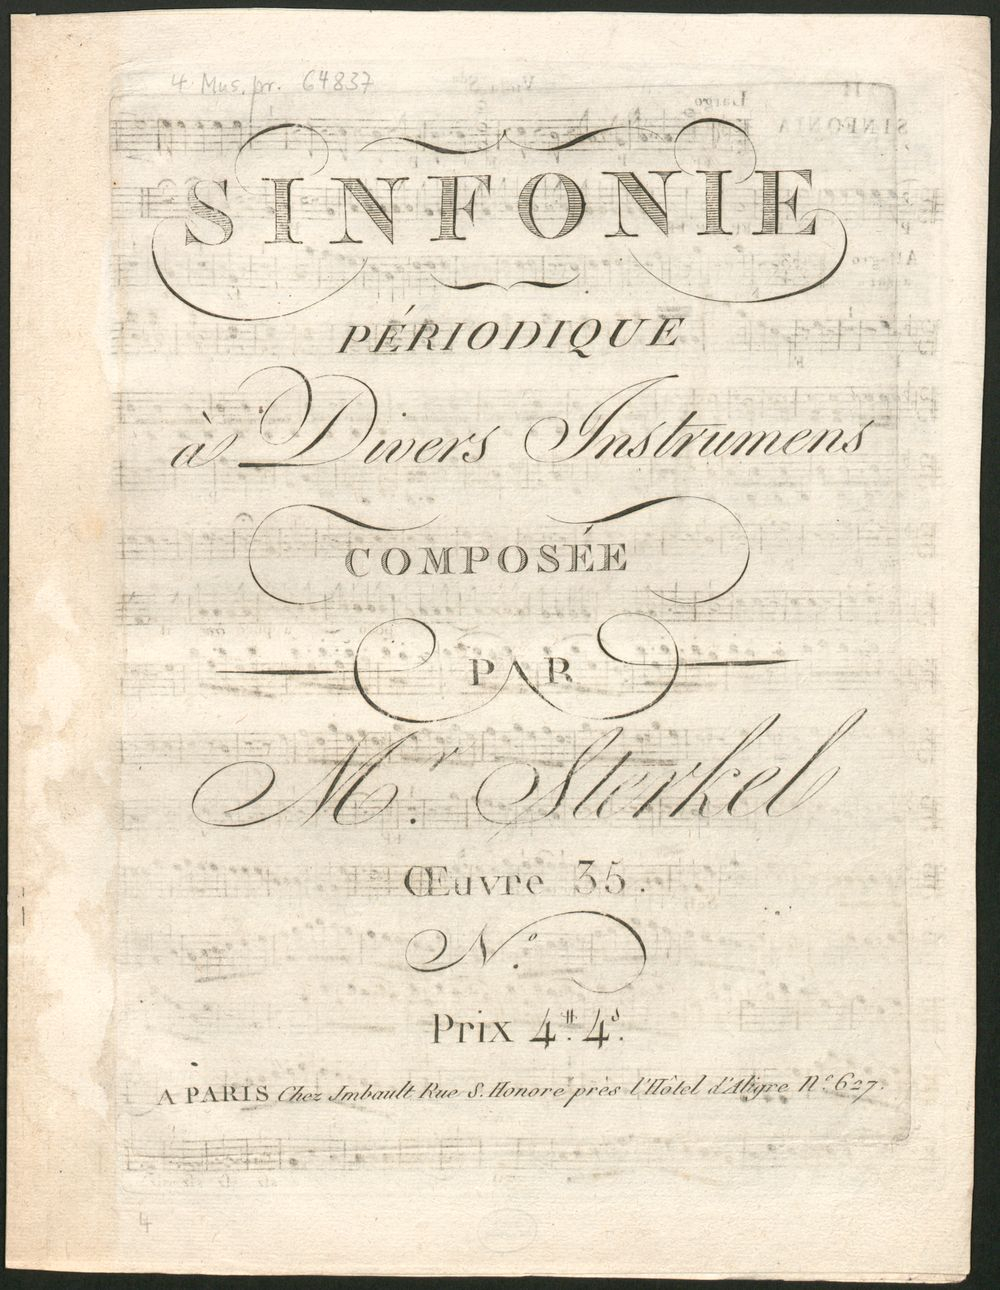 4 Mus. pr. 64837
SINFONIE
PÉRIODIQUE
à Divers Instrumens
COMPOSÉE
PAR
Mr. Sterkel
Œuvre 35.
No.
Prix 4tt. 4s.
A PARIS Chez Imbault Rue S. Honoré près l'Hôtel d'Aligre No. 627.
4